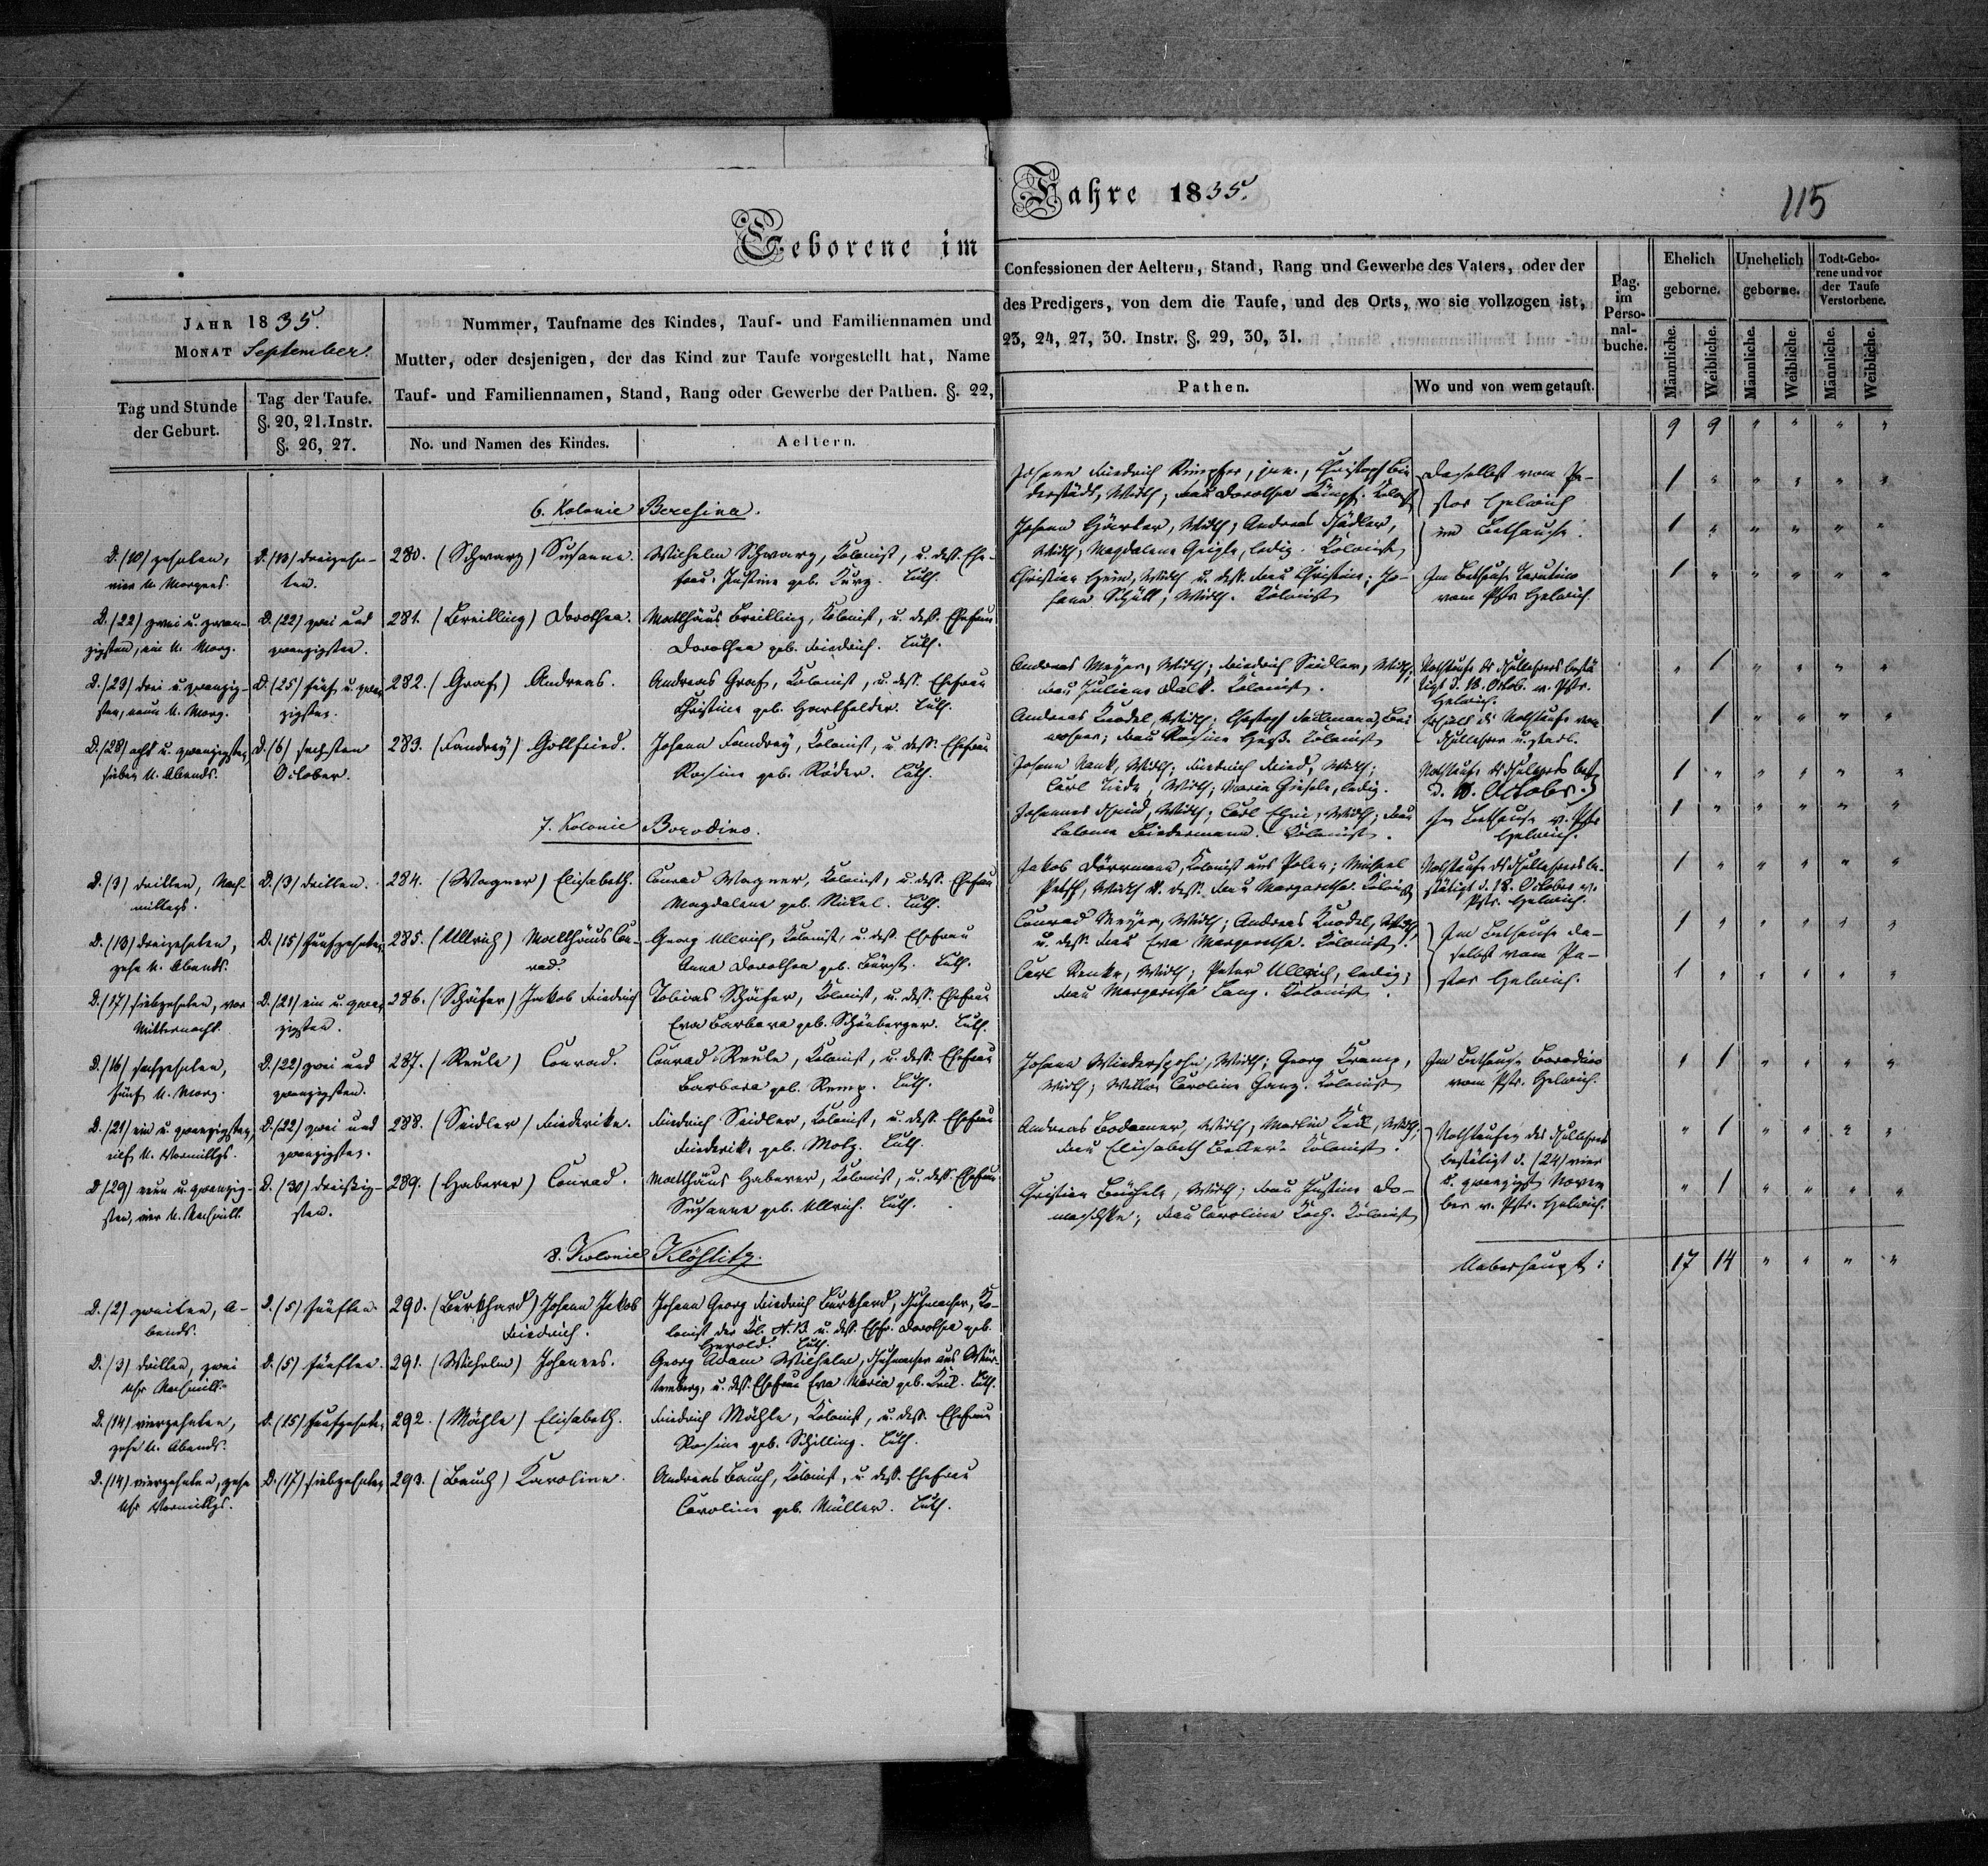 Geborene im
JAHR 1835.
MONAT September.
Nummer, Taufname des Kindes, Tauf- und Familiennamen und
Mutter, oder desjenigen, der das Kind zur Taufe vorgestellt hat, Name
Tauf- und Familiennamen, Stand, Rang oder Gewerbe der Pathen. §. 22,
Tag und Stunde
der Geburt.
Tag der Taufe.
§. 20, 21. Instr.
§. 26, 27.
No. und Namen des Kindes.
Aeltern.
6. Kolonie Beresina.
D. (10) zehnten,
vier U. Morgens.
D. (13) dreizehn-
ten.
280. (Schwarz) Susanne.
Wilhelm Schwarz, Kolonist, u. dess. Ehe-
frau Justine geb. Kurz. Luth.
D. (22) zwei u. zwan-
zigsten, ein U. Morg.
D. (22) zwei und
zwanzigsten.
281. (Breitling) Dorothea.
Matthäus Breitling, Kolonist, u. dess. Ehefrau
Dorothea geb. Friedrich. Luth.
D. (23) drei u. zwanzig-
sten, neun U. Morg.
D. (25) fünf u. zwan
zigsten.
282. (Graf) Andreas.
Andreas Graf, Kolonist, u. dess. Ehefrau
Christine geb. Luth.
D. (28) acht u. zwanzigsten,
sieben U. Abends.
D. (6) sechsten
October.
283. (Fandrey) Gottfried.
Johann Fandrey, Kolonist, u. dess. Ehefrau
Rosine geb. Röder. Luth.
7. Kolonie Borodino.
D. (3) dritten, Nach-
mittags.
D. (3) dritten.
284. (Wagner) Elisabeth.
Conrad Wagner, Kolonist, u. dess. Ehefrau
Magdalena geb. Nickel. Luth.
D. (13) dreizehnten,
zehn U. Abends.
D. (15) fünfzehnten
285. (Ullrich) Matthäus Con-
rad.
Georg Ullrich, Kolonist, u. dess. Ehefrau
Anna Dorothea geb. Luth.
D. (17) siebzehnten, vor
Mitternacht.
D. (21) ein u. zwan
zigsten.
286. (Schäfer) Jakob Friedrich
Tobias Schäfer, Kolonist, u. dess. Ehefrau
Eva Barbara geb. Schönberger. Luth.
D. (16) sechzehnten,
fünf U. Morg.
D. (22) zwei und
zwanzigsten.
287. (Reule) Conrad.
Conrad Reule, Kolonist, u. dess. Ehefrau
Barbara geb. Remp. Luth.
D. (21) ein u. zwanzigsten,
elf U. Vormittgs.
D. (22) zwei und
zwanzigsten.
288. (Seidler) Friederike.
Friedrich Seidler, Kolonist, u. dess. Ehefrau
Friederike geb. Motz. Luth.
D (29) neun u. zwanzig-
sten, vier U. Nachmitt.
D. (30) dreißig-
sten.
289. (Haberer) Conrad.
Matthäus Haberer, Kolonist, u. dess. Ehefrau
Susanne geb. Ullrich. Luth.
8. Kolonie Klöstitz.
D. (2) zweiten, A-
bends.
D. (5) fünften.
290. (Burkhard) Johann Jakob
Friedrich.
Johann Georg Friedrich Burkhard, Schumacher, Ko-
lonist der Kol. u. dess. Ehefr. Dorothea geb.
Herold. Luth.
D. (3) dritten, zwei
Uhr Nachmitt.
D. (5) fünften.
291. (Wilhelm) Johannes.
Georg Adam Wilhelm, Schumacher aus Wür-
temberg, u. dess. Ehefrau Eva Maria geb. Luth.
D. (14) vierzehnten,
zehn U. Abends.
D. (15) fünfzehnten
292. (Mähle) Elisabeth.
Friedrich Mähle, Kolonist, u. dess. Ehefrau
Rosine geb. Schilling. Luth.
D. (14) vierzehnten, zehn
Uhr Vormittgs.
D. (17) siebzehnten
293. (Bauch) Karoline.
Andreas Bauch, Kolonist, u. dess. Ehefrau
Caroline geb. Müller. Luth.
Jahre 1835.
115
Confessionen der Aeltern, Stand, Rang und Gewerbe des Vaters, oder der
des Predigers, von dem die Taufe, und des Orts, wo sie vollzogen ist,
23, 24, 27, 30. Instr. §. 29, 30, 31.
Pathen.
Wo und von wem getauft.
Pag.
im
Perso-
nal-
buche.
Ehelich
geborne.
Unehelich
geborne.
Todt-Gebo-
rene und vor
der Taufe
Verstorbene.
Männliche.
Weibliche.
Männliche.
Weibliche.
Männliche.
Weibliche.
9 9 " " " "
Johann Friedrich Rimpfer, jun., Christoph Bie
derstädt, Wirth; Frau Dorothea Kolonist
Daselbst vom Pa-
stor Helwich
1 " " " " "
Johann Wirth; Andreas Schädler,
Wirth; Magdalena Geigle, ledig. Kolonist
im Bethause.
1 " " " " "
Christian Heim, Wirth u. dess. Frau Christine; Jo-
hann Schüll, Wirth. Kolonist
Im Bethause Tarutino
vom Pstr Helwich.
1 " " " " "
Andreas Meyer, Wirth; Friedrich Seidler, Wirth;
Frau Juliane Dalk. Kolonist.
Nothtaufe ds Schullehrers bestä
tigt d. 13. Octob. v. Pstr.
Helwich.
" 1 " " " "
Andreas Knodel, Wirth; Christoph
Frau Rosine Heß. Kolonist
Nothtaufe vom
Schullehrer u. starb.
1 " " " "
Johann Wirth; Friedrich Fried, Wirth;
Carl Tiede, Wirth; Maria Giesele, ledig.
Nothtaufe ds Schullehrers best
d. October.
1 " " " " "
Johannes Schmid, Wirth; Carl Wirth; Frau
Salome Biedermann. Kolonist.
Im Bethause v. Pstr
Helwich.
1 " " " " "
Jakob Dörrmann, Kolonist aus Polen; Michael
Wirth u. dess. Frau Margaretha. Kolonist
Nothtaufe ds Schullehrers be-
stätigt d. 18. October v.
Pstr. Helwich.
1 " " " " "
Conrad Meyer, Wirth; Andreas Knodel, Wirth
u. dess. Frau Eva Margaretha. Kolonist.
Im Bethause da-
selbst vom Pa-
stor Helwich.
1 " " " " "
Carl Renke, Wirth; Peter Ullrich, ledig;
Frau Margaretha Lang. Kolonist.
1 " " " " "
Johann Wiederspohn, Wirth; Georg Kramp,
Wirth; Wittwe Caroline Ganz. Kolonist
Im Bethause Borodino
vom Pstr. Helwich.
" 1 " " " "
Andreas Bodamer, Wirth, Martin Keil, Wirth;
Frau Elisabeth Better. Kolonist.
Nothtaufen des Schullehrers
bestätigt d. (24) vier
u. zwanzigst Novem
ber v. Pstr. Helwich.
" 1 " " " "
Christian Büchele, Wirth; Frau Justine Do-
maschke; Frau Caroline Koch. Kolonist
" 1 " " " "
Ueberhaupt:
17 14 " " " "